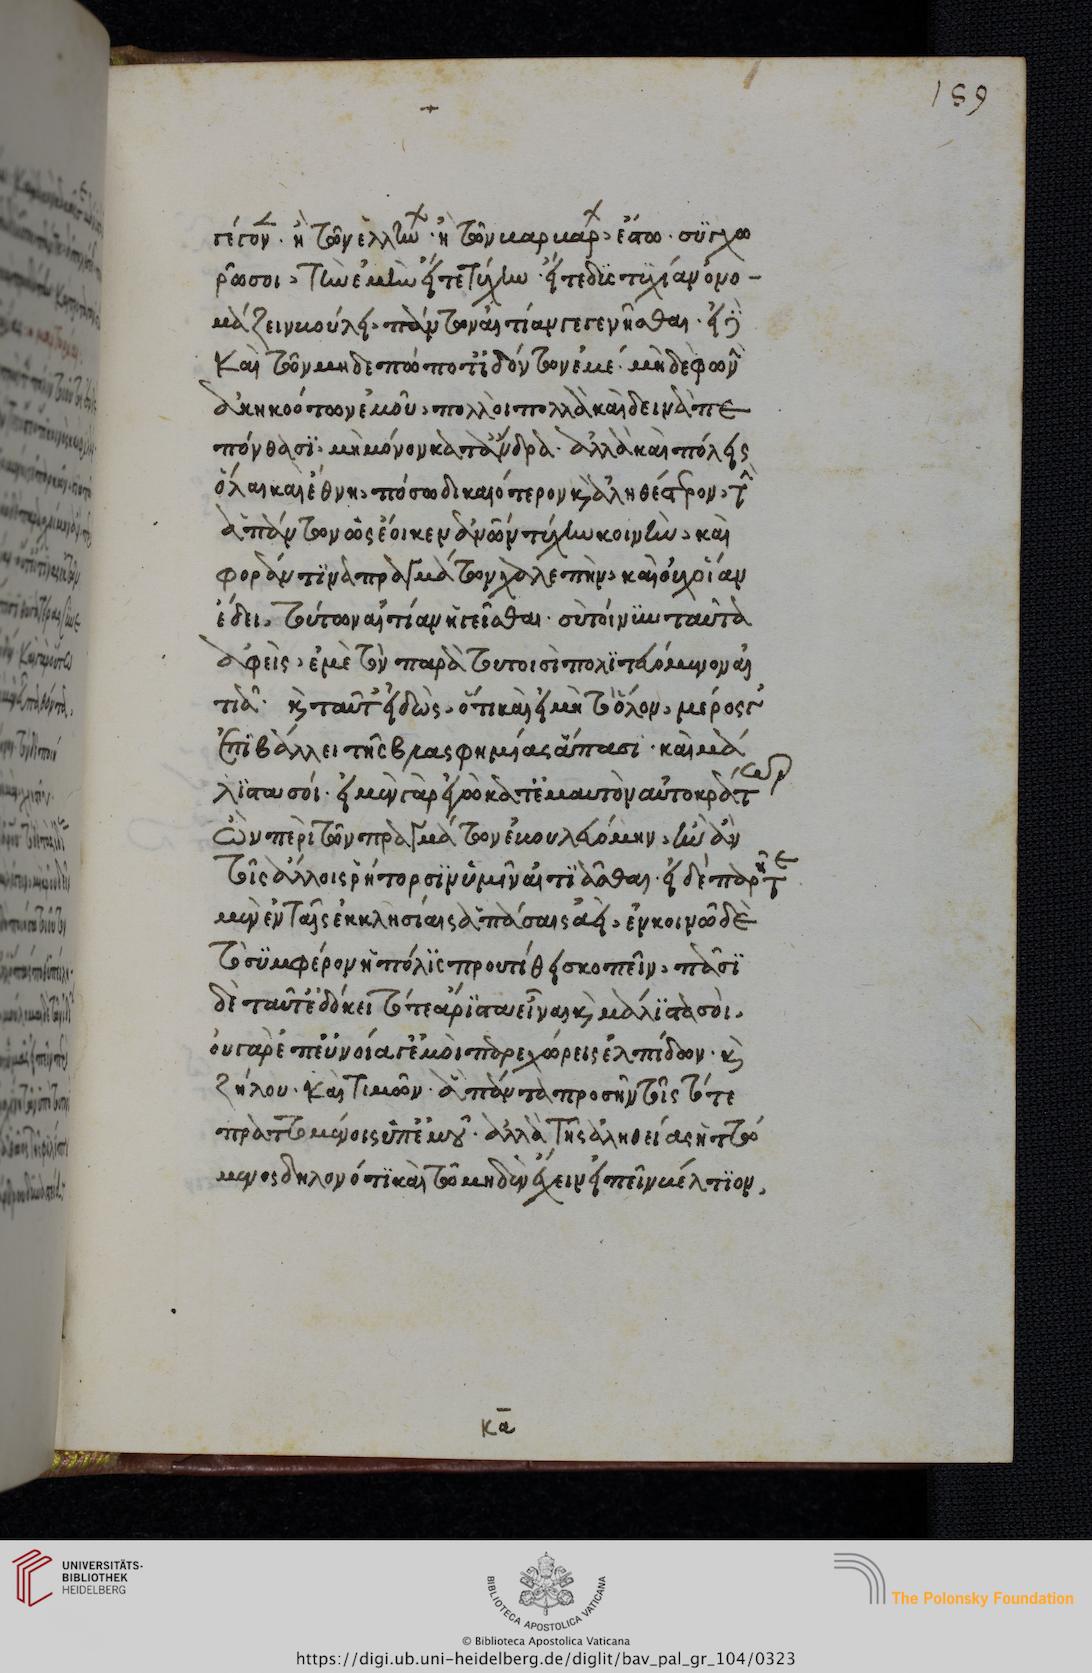 159
γεγον. ἢ τῶν ἑλλήνων. ἢ τῶν βαρβάρων, ἔστω. συγχω
ρῶσοι, τὴν ἐμὴν εἴτε τύχην. εἴτε δυστυχίαν ὀνο-
μάζειν βούλει, πάντων αἰτίαν γεγενῆσθαι. εἰ δὲ
καὶ τῶν μηδεπώποτ' ἰδόντων ἐμέ. μὴδὲ φωνὴν
ἀκηκοότων ἐμοῦ, πολλοὶ πολλὰ καὶ δεινὰ πε
πόνθασι, μὴ μόνον κατ' ἄνδρα. ἀλλὰ καὶ πόλεις
ὅλαι καὶ ἔθνη, πόσῳ δικαιότερον καὶ ἀληθέστερον, τὴν
ἁπάντων ὡς ἔοικεν ἀνθρώπων τύχην κοινὴν, καὶ
φοράν τινα πραγμάτων χαλεπὴν, καὶ οὐχ οἵαν
ἔδει, τούτων αἰτίαν ἡγεῖσθαι. σὺ τοίνυν ταῦτα
ἀφεὶς, ἐμὲ τὸν παρὰ τουτοισὶ πολιτευόμενον αἰ
τιᾷ. καὶ ταῦτ' εἰδὼς, ὅτι καὶ εἰ μὴ τὸ ὅλον, μέρος γ'
ἐπιβάλλει τῆς βλασφημίας ἅπασι. καὶ μά
λιστα σοί. εἰ μὲν γὰρ ἐγὼ κατ' ἐμαυτὸν αὐτοκράτωρ
ὢν περὶ τῶν πραγμάτων ἐβουλευόμην, ἦν ἂν
τοῖς ἄλλοις ῥήτορσιν ὑμῖν αἰτιᾶσθαι. εἰ δὲ παρῆτε
μὲν ἐν ταῖς ἐκκλησίαις ἁπάσαις ἀεὶ, ἐν κοινῷ δὲ
τὸ συμφέρον ἡ πόλις προυτίθει σκοπεῖν, πᾶσι
δὲ ταῦτ' ἐδόκει τότ' ἄριστα εἶναι, καὶ μάλιστα σοὶ.
οὐ γὰρ ἐπ' εὐνοίᾳ γ' ἐμοὶ παρεχώρεις ἐλπίδων. καὶ
ζήλου. καὶ τιμῶν. ἃ πάντα προσῆν τοῖς τότε
πραττομένοις ὑπ' ἐμοῦ. ἀλλὰ τῆς ἀληθείας ἡττώ
μενος δηλονότι καὶ τῷ μηδὲν ἔχειν εἰπεῖν βέλτιον,
κα
UNIVERSITÄTS-
BIBLIOTHEK
HEIDELBERG
BIBLIOTECA APOSTOLICA VATICANA
The Polonsky Foundation
© Biblioteca Apostolica Vaticana
https://digi.ub.uni-heidelberg.de/diglit/bav_pal_gr_104/0323